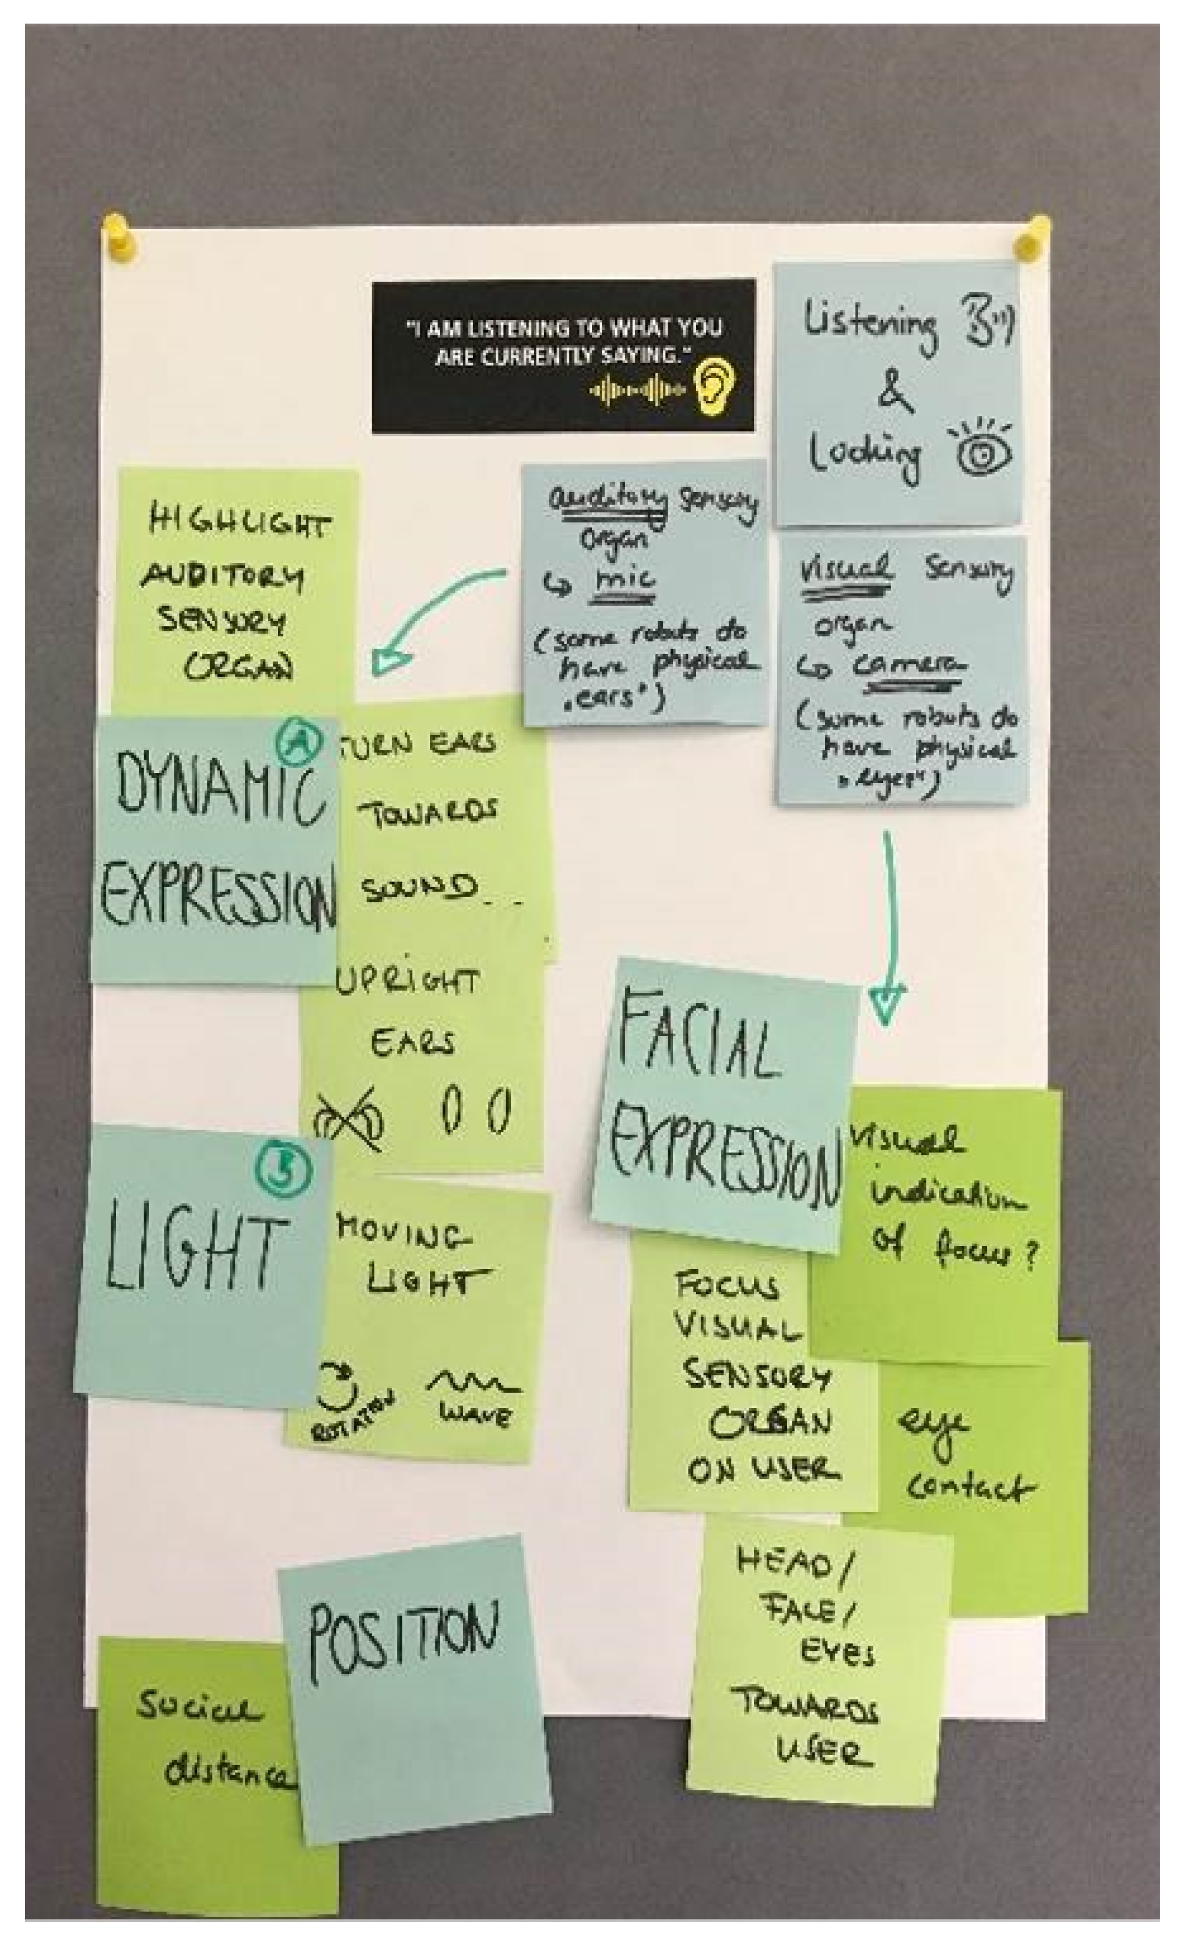 "I AM LISTENING TO WHAT YOU
ARE CURRENTLY SAYING."
Listening
&
Looking
auditory sensory
organ
↳ mic
(some robots do
have physical
„ears")
visual sensory
organ
↳ camera
(some robots do
have physical
„eyes")
HIGHLIGHT
AUDITORY
SENSORY
ORGAN
A
DYNAMIC
EXPRESSION
TURN EARS
TOWARDS
SOUND..
UPRIGHT
EARS
B
LIGHT
MOVING
LIGHT
ROTATION
WAVE
FACIAL
EXPRESSION
visual
indication
of focus?
FOCUS
VISUAL
SENSORY
ORGAN
ON USER
eye
contact
HEAD/
FACE/
EYES
TOWARDS
USER
POSITION
social
distance